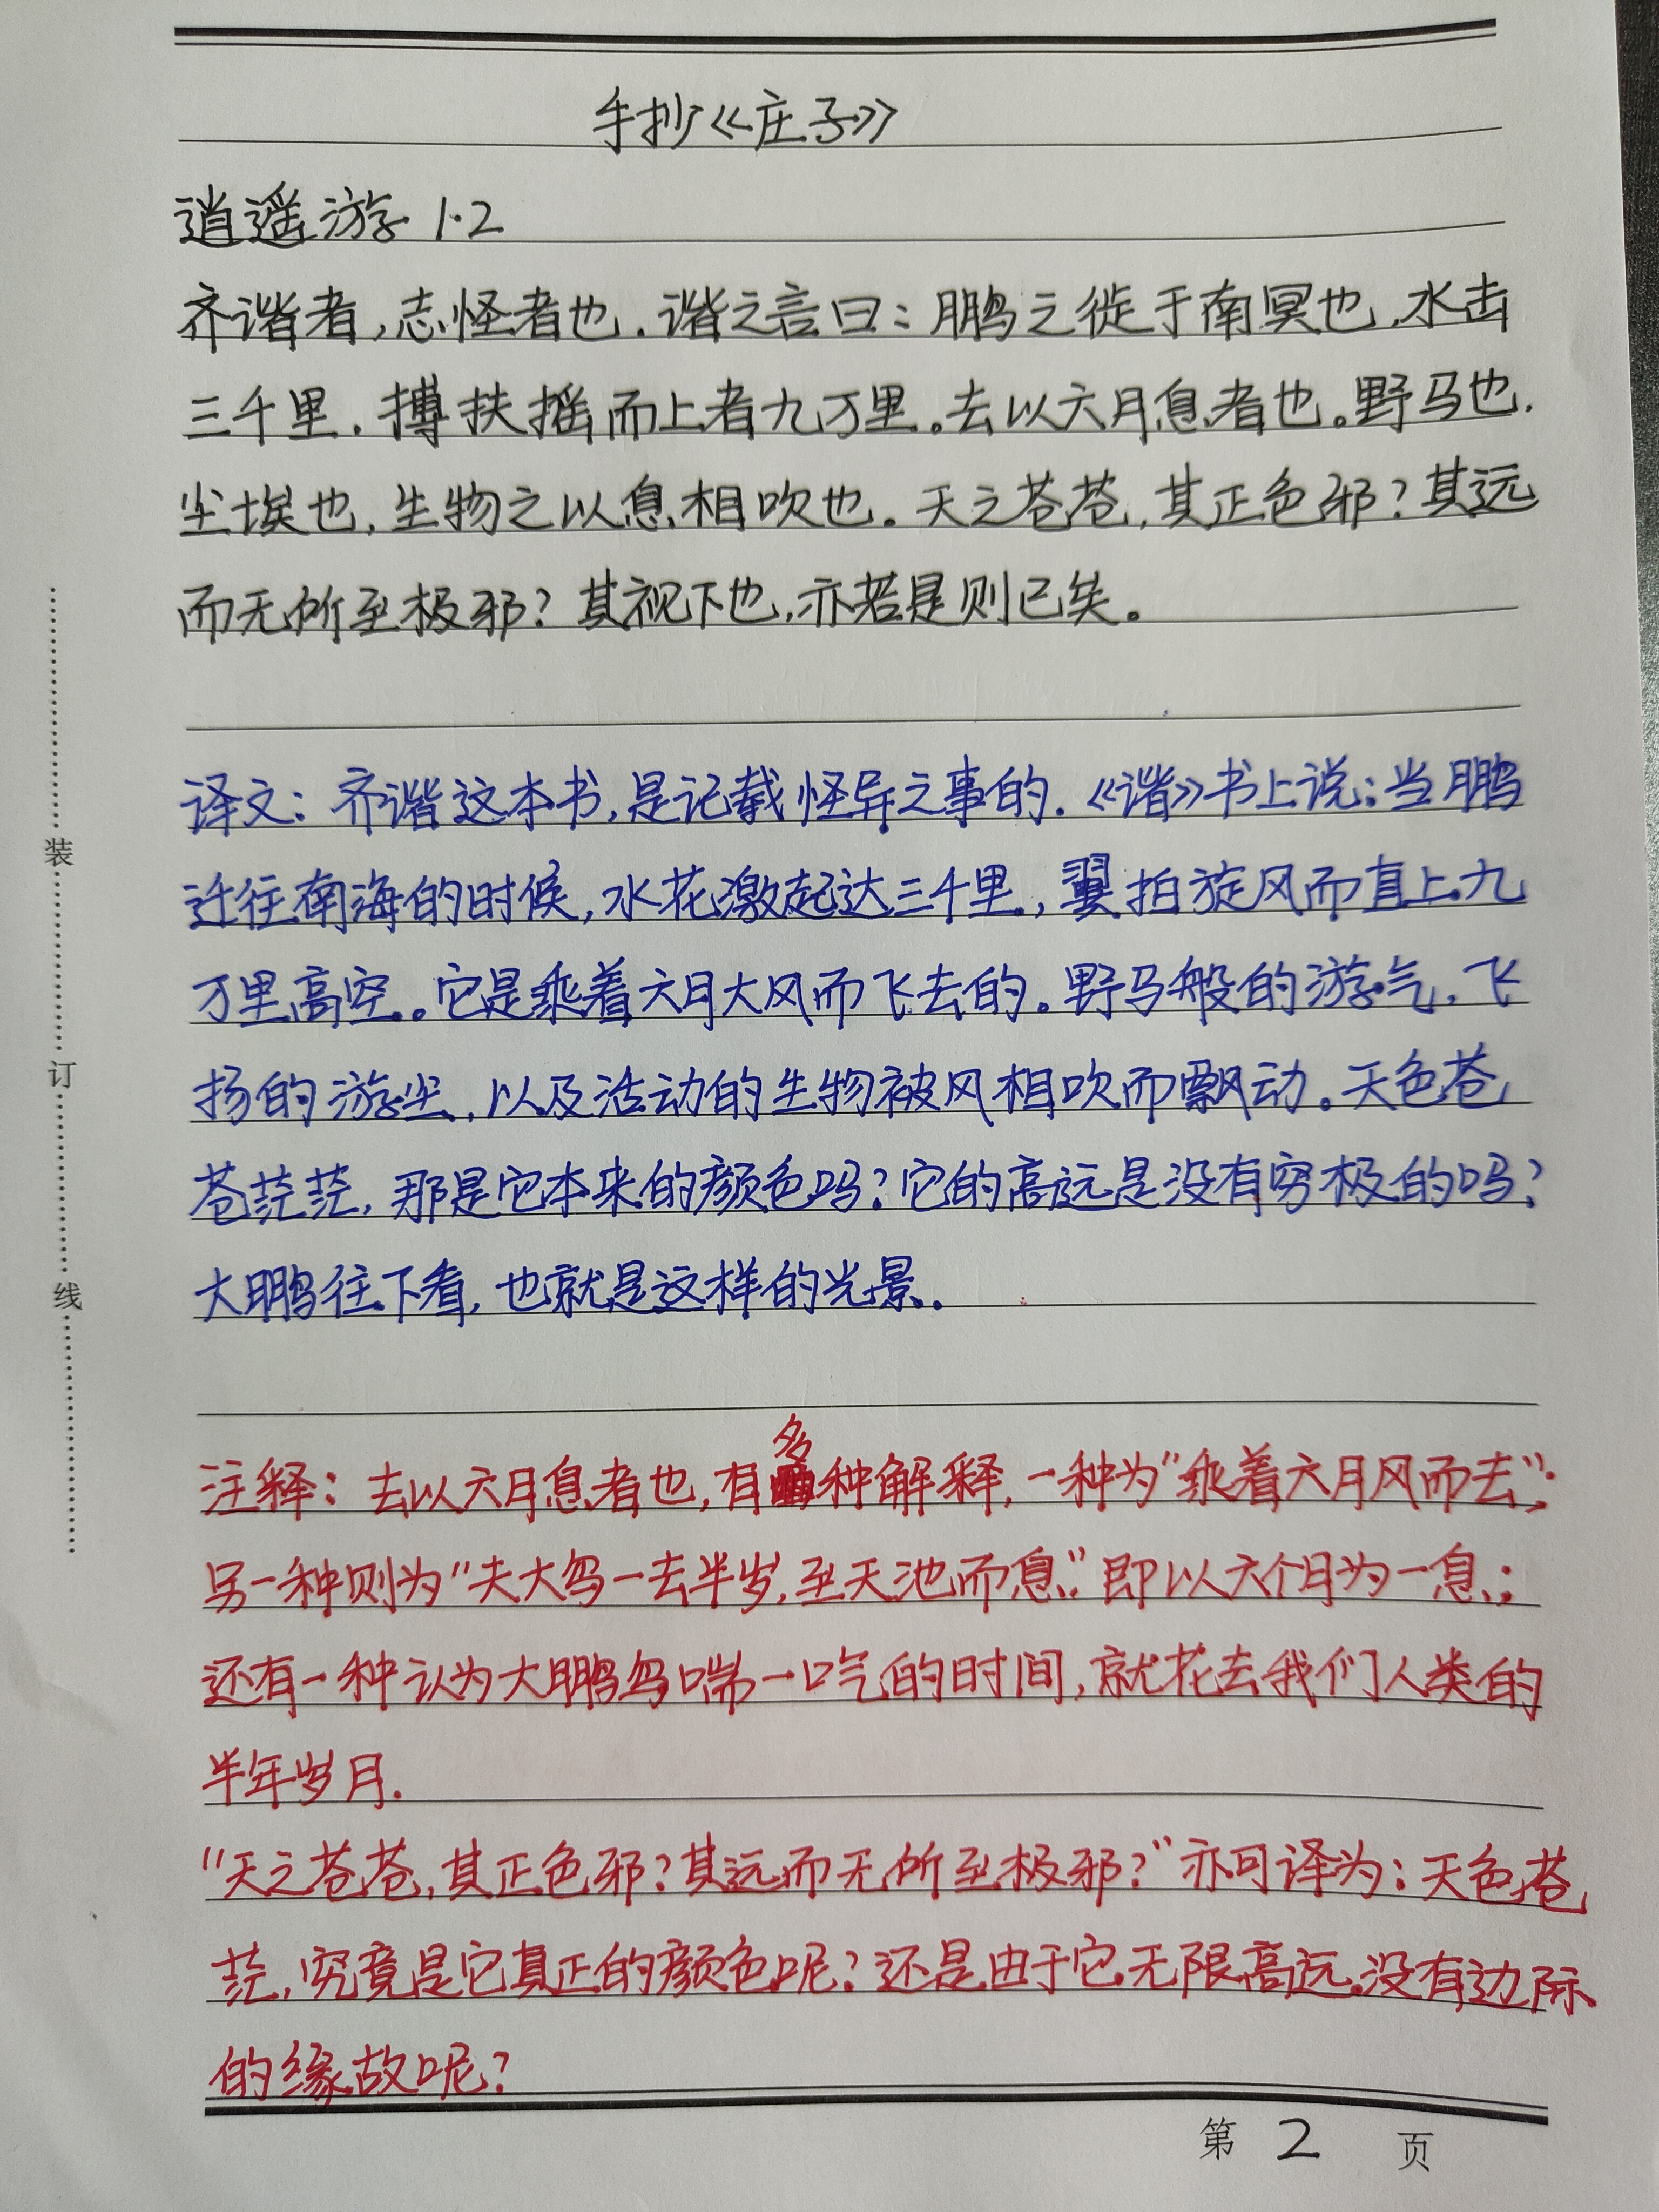 手抄《庄子》
逍遥游 1·2
齐谐者,志怪者也.谐之言曰:鹏之徙于南冥也,水击
三千里.搏扶摇而上者九万里。去以六月息者也。野马也.
尘埃也,生物之以息相吹也。天之苍苍,其正色邪?其远
而无所至极邪?其视下也,亦若是则已矣。
译文:齐谐这本书,是记载怪异之事的.《谐》书上说:当鹏
迁往南海的时候,水花激起达三千里,翼拍旋风而直上九
万里高空。它是乘着六月大风而飞去的。野马般的游气,飞
扬的游尘,以及活动的生物被风相吹而飘动。天色苍
苍茫茫,那是它本来的颜色吗?它的高远是没有穷极的吗?
大鹏往下看,也就是这样的光景.
注释:去以六月息者也,有多种解释,一种为"乘着六月风而去";
另一种则为"夫大鸟一去半岁,至天池而息."即以六个月为一息;
还有一种认为大鹏鸟喘一口气的时间,就花去我们人类的
半年岁月.
"天之苍苍,其正色邪?其远而无所至极邪?"亦可译为:天色苍
茫,究竟是它真正的颜色呢?还是由于它无限高远,没有边际
的缘故呢?
装
订
线
第 2 页